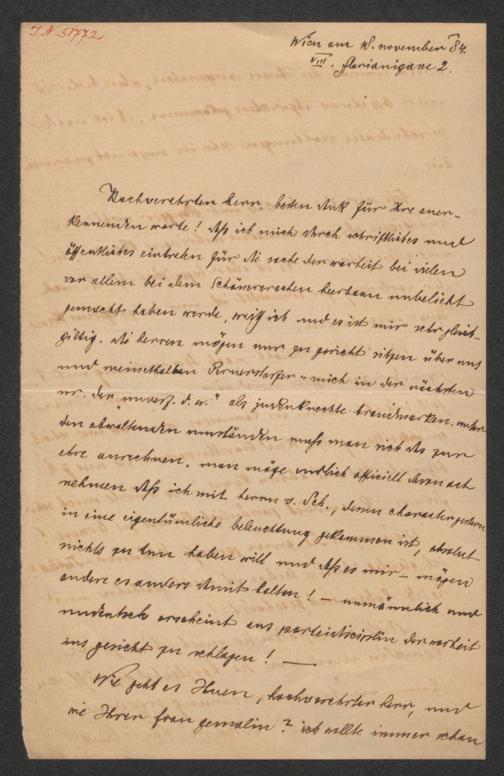 I.N. 51772
Wien am 18. november 84.
VIII. florianigasse 2.
Hochverehrten herr, besten dank für Ihre aner-
kennenden worte! daß ich mich durch schriftliches und
öffentliches eintreten für die sache der warheit bei vielen
vor allem bei dem Schönererschen heerbann unbeliebt
gemacht haben werde, weiß ich und es ist mir sehr gleich-
giltig. die herren mögen nur zu gericht sitzen über uns
und meinethalben Pernerstorfer u. mich in der nächsten
nr. der "unverf. d. w." als judenknechte brandmarken. unter
den obwaltenden umständen muß man sich das zur
ehre anrechnen. man möge endlich officiell davon act
nehmen daß ich mit herrn v. Sch., dessen character gestern
in eine eigentümliche beleuchtung gekommen ist, absolut
nichts zu tun haben will und daß es mir – mögen
andere es anders damit halten! – unmännlich und
undeutsch erscheint aus parteidisciplin der warheit
ins gesicht zu schlagen! —
Wie geht es Ihnen, hochverehrter herr, und
wie Ihrer frau gemalin? ich wollte immer schon